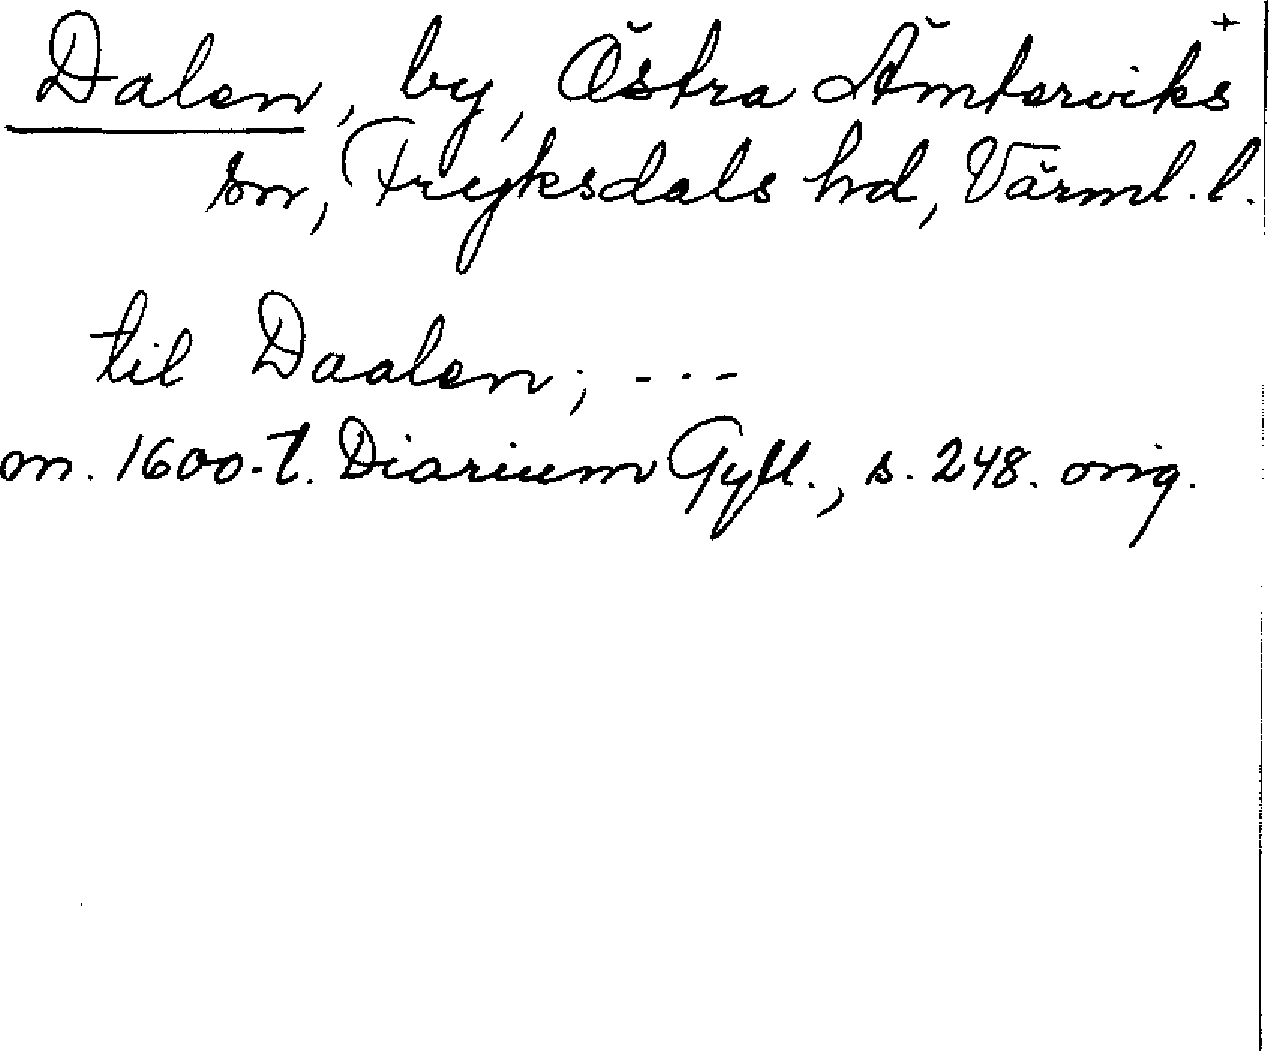 Dalen, by, Östra Ämterviks +
sn, Fryksdals hd, Värml. l.
til Daalen; - - -
m. 1600-t. Diarium Gyll., s. 248. orig.